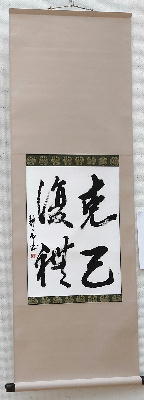 克己
復禮